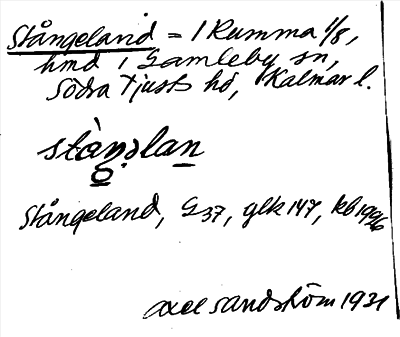 Stångeland = 1 Rumma 1/8,
hmd i Gamleby sn,
Södra Tjusts hd, Kalmar l.
stàŋəlan
Stångeland, G37, glk 147, kb 1996
Axel Sandström 1931